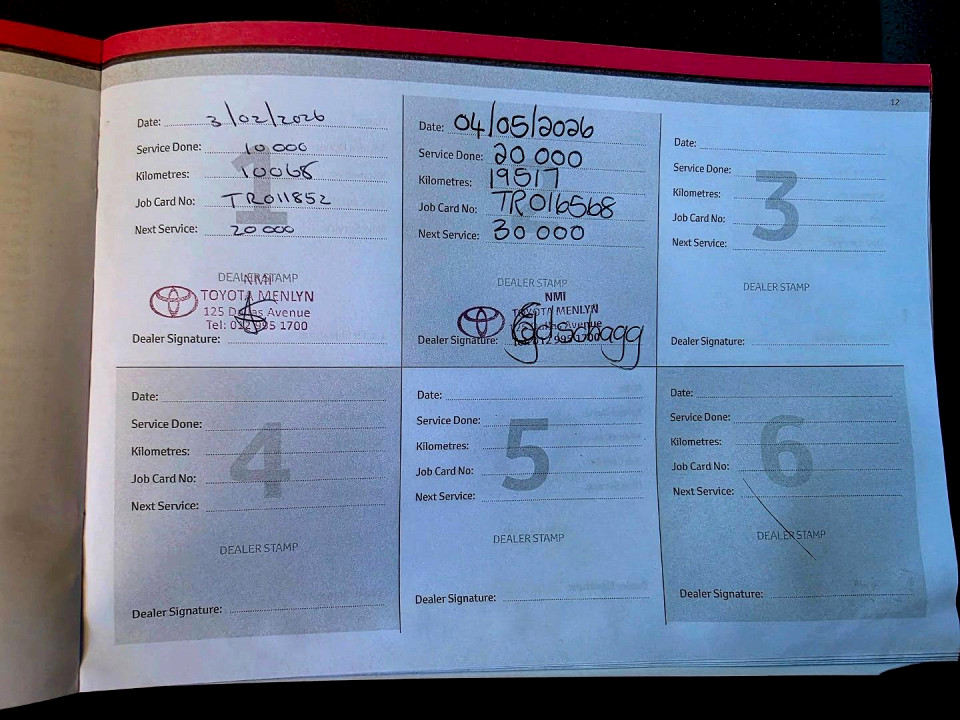 12
Date: 3/02/2026
Service Done: 10 000
Kilometres: 10068
Job Card No: TR011852
Next Service: 20 000
DEALER STAMP
NMI
TOYOTA MENLYN
125 Dallas Avenue
Tel: 012 995 1700
Dealer Signature:
Date: 04/05/2026
Service Done: 20 000
Kilometres: 19517
Job Card No: TR016568
Next Service: 30 000
DEALER STAMP
NMI
TOYOTA MENLYN
Avenue
Tel: 012 995 1700
Dealer Signature:
3
Date:
Service Done:
Kilometres:
Job Card No:
Next Service:
DEALER STAMP
Dealer Signature:
4
Date:
Service Done:
Kilometres:
Job Card No:
Next Service:
DEALER STAMP
Dealer Signature:
5
Date:
Service Done:
Kilometres:
Job Card No:
Next Service:
DEALER STAMP
Dealer Signature:
6
Date:
Service Done:
Kilometres:
Job Card No:
Next Service:
DEALER STAMP
Dealer Signature: